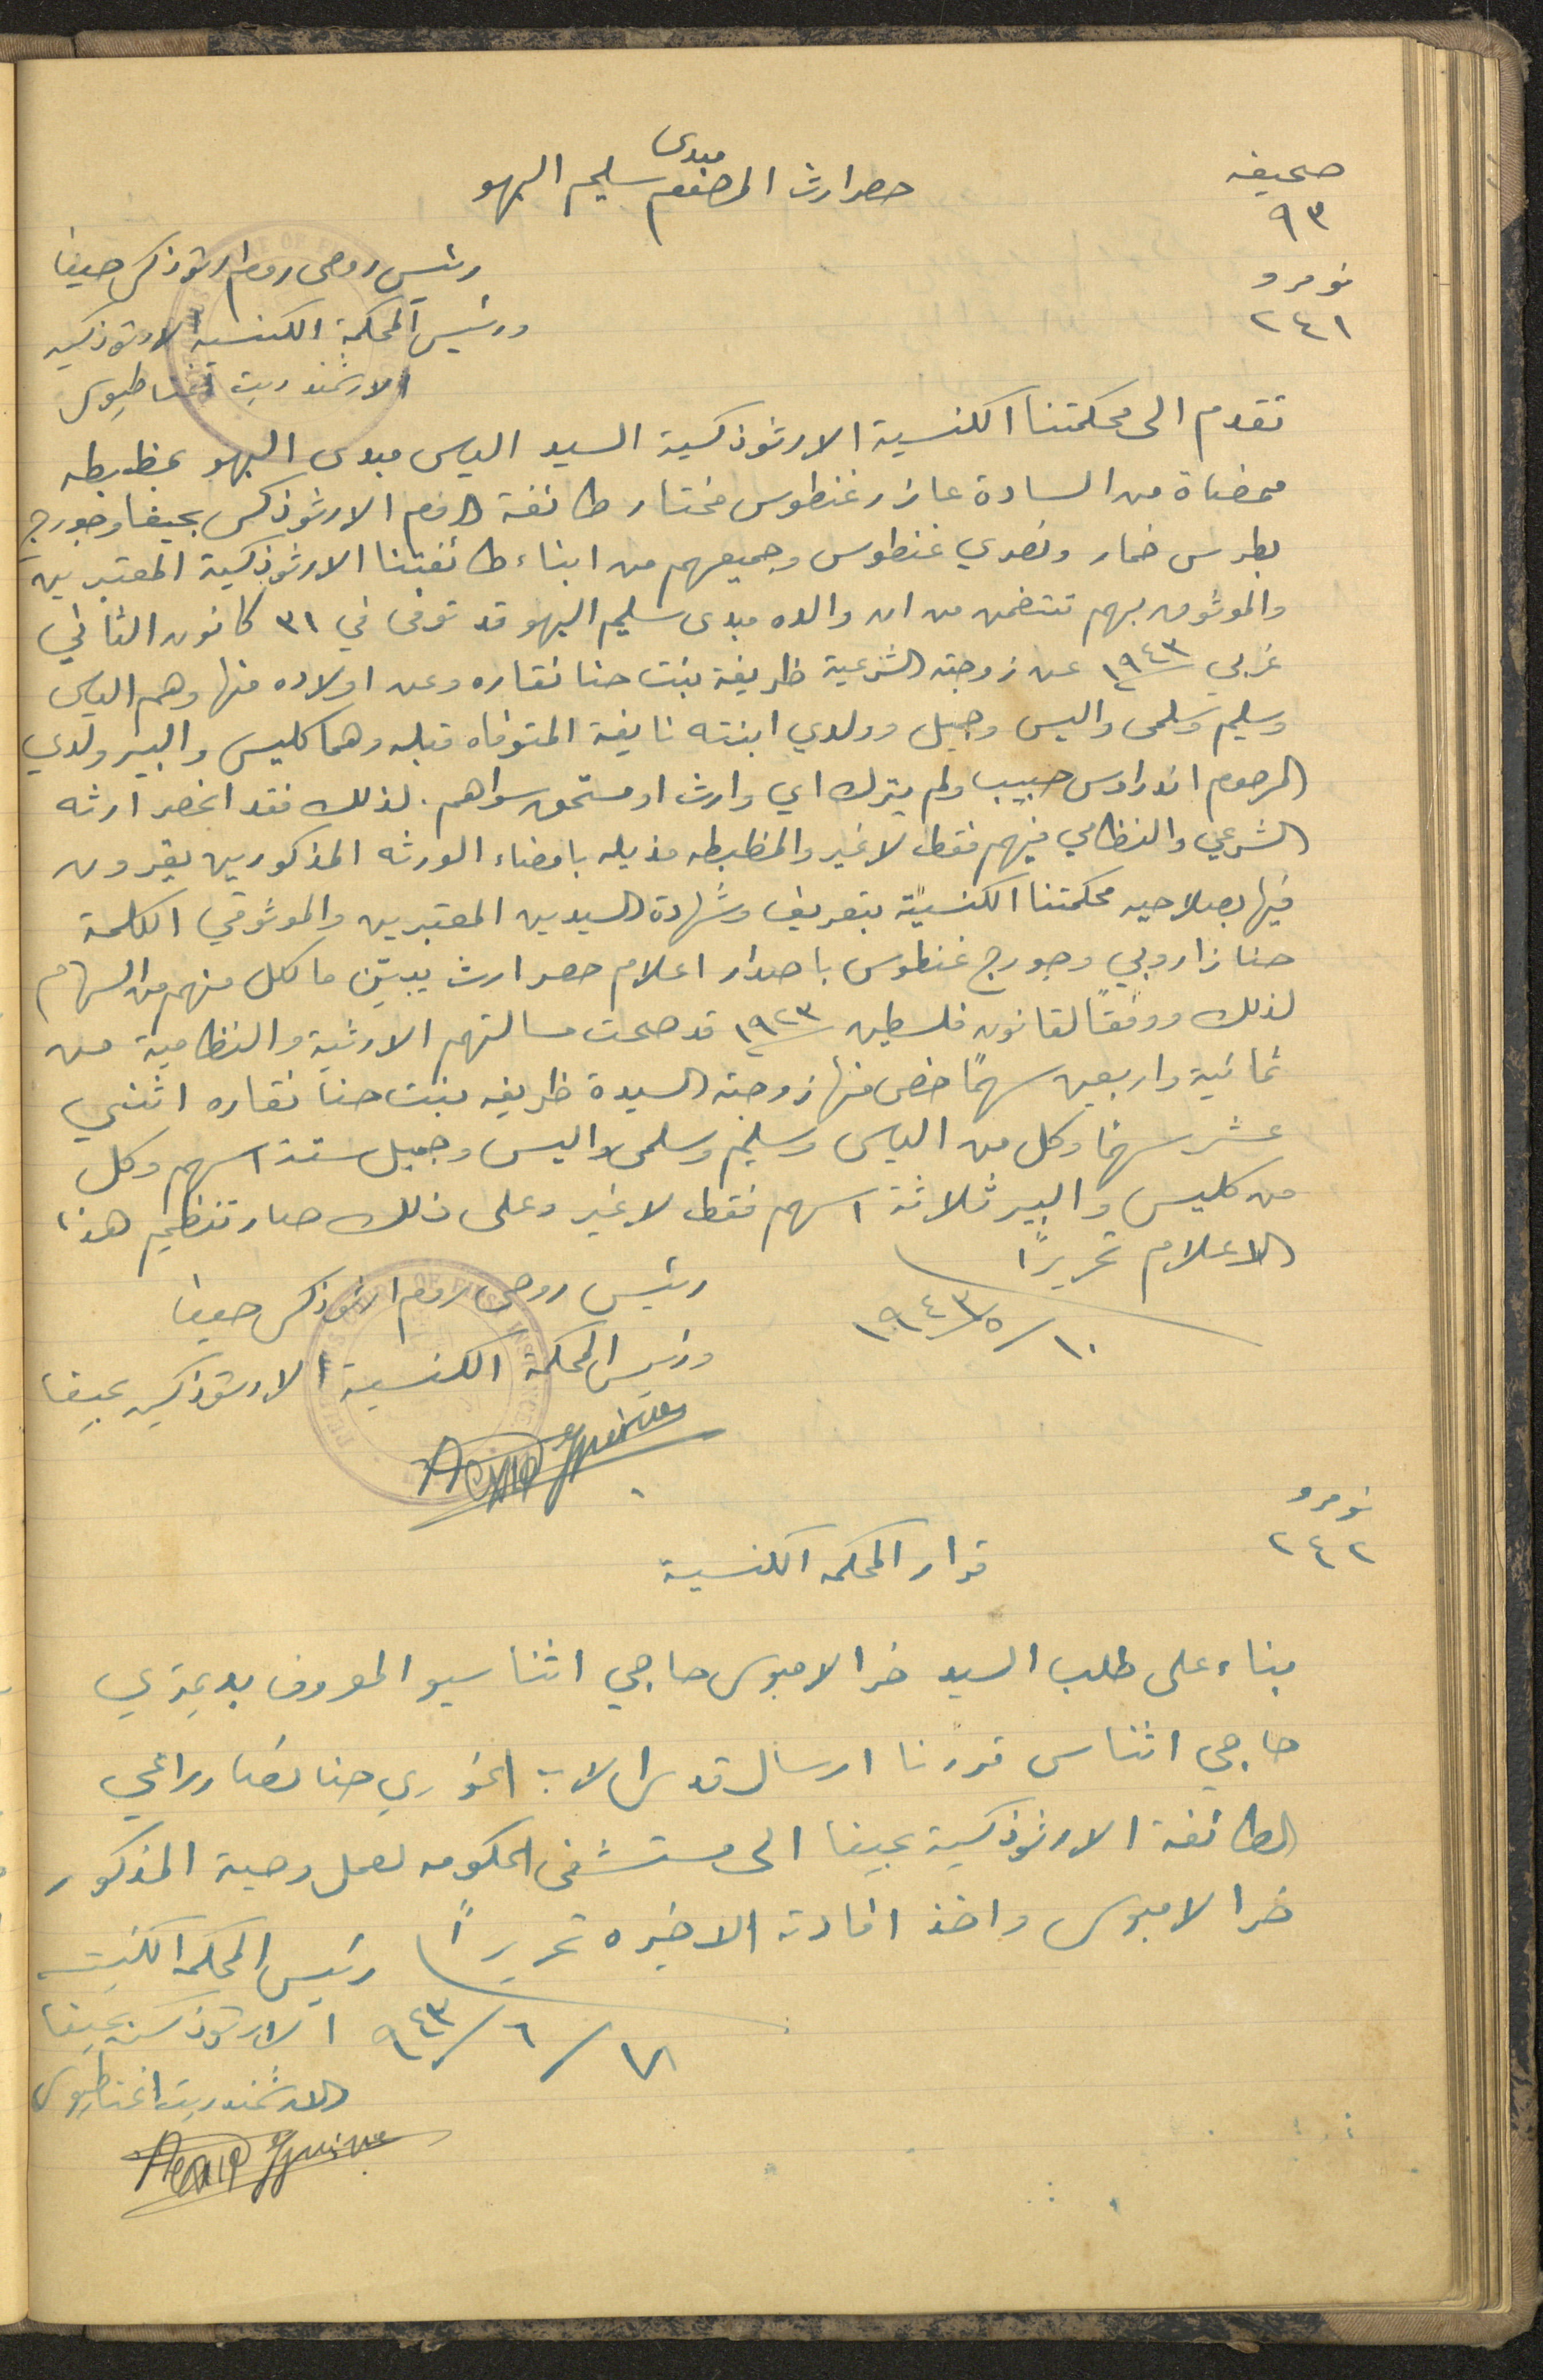 صحيفه
٩٣
نومرو
٢٤١
حصر ارث المرحوم مبدى سليم البهو
رئيس روحي روم ارثوذكس حيفا
ورئيس المحكمة الكنسية الارثوذكسيه
الارشمندريت اغناطيوس
تقدم الى محكمتنا الكنسية الارثوذكسية السيد الياس مبدى البهو بمظبطه
ممضاة من السادة عازر غنطوس مختار طائفة الروم الارثوذكس بحيفا وجورج
بطرس خمار ونصري غنطوس وجميعهم من ابناء طائفتنا الارثوذكسية المعتبرين
والموثوق بهم تتضمن من ان والده مبدى سليم البهو قد توفى في ٣١ كانون الثاني
غربي ١٩٤٣ عن زوجته الشرعية ظريفة بنت حنا نقاره وعن اولاده منها وهم الياس
وسليم وسلمى واليس وجميل وولدي ابنته نايفة المتوفاه قبله وهما كليس والبير ولدي
المرحوم اندراوس حبيب ولم يترك اي وارث او مستحق سواهم. لذلك فقد انحصر ارثه
الشرعي والنظامي فيهم فقط لا غير والمظبطه مذيله بامضاء الورثه المذكورين يقرون
فيها بصلاحيه محكمتنا الكنسيّة بتعريف وشهادة السيدين المعتبرين والموثوقي الكلمة
حنا زاروبي وجورج غنطوس باصدار اعلام حصر ارث يبيّن ما لكل منهم من السهام
لذلك ووفقاً لقانون فلسطين ١٩٢٣ قد صحت مسالتهم الارثية والنظامية من
ثمانية واربعين سهمًا خص منها زوجته السيدة ظريفه بنت حنا نقاره اثني
عشر سهمًا وكل من الياس وسليم وسلمى واليس وجميل ستة اسهم وكل
من كليس والبير ثلاثة اسهم فقط لا غير وعلى ذلك صار تنظيم هذا
الاعلام تحريرًا
١٠/٥/١٩٤٣
رئيس روحي روم ارثوذكس حيفا
ورئيس المحكمة الكنسية الارثوذكسيه بحيفا
نومرو
٢٤٢
قرار المحكمه الكنسية
بناء على طلب السيد خرالامبوس حاجي اثناسيو المعروف بديمتري
حاجي اثناس قررنا ارسال قدس الاب الخوري حنا نصار راعي
الطائفة الارثوذكسية بحيفا الى مستشفى الحكومه لعمل وصية المذكور
خرالامبوس واخذ افادته الاخيره تحريرًا
٩٤٣/٦/١٧
رئيس المحكمه الكنسية
الارثوذكسيه بحيفا
الارشمندريت اغناطيوس